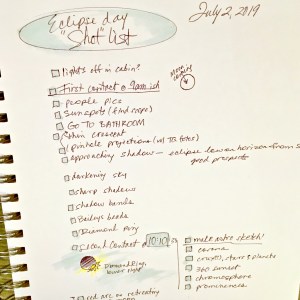 Eclipse day
"Shot" list
July 2, 2019
lights off in cabin?
First contact @ 9am ish
people pics
sunspots (find nope)
GO TO BATHROOM
thin crescent
pinhole projections
approaching shadow - eclipse low on horizon from
good prospects
darkening sky
sharp shadows
shadow bands
Baileys beads
Diamond ring
second contact @ 10:10
make astro sketch!
corona
craft, stars & planets
360 sunset
chromosphere
prominences
Diamond Ring,
lower right
red arc on retreating